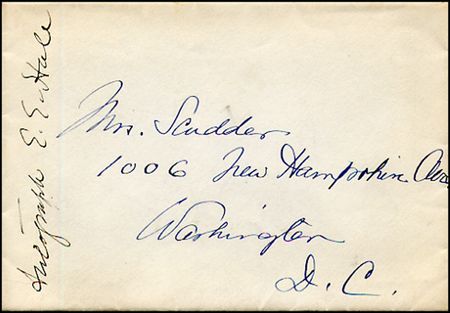 Autograph E. E. Hale
Mrs. Scudder
1006 New Hampshire Ave
Washington
D. C.